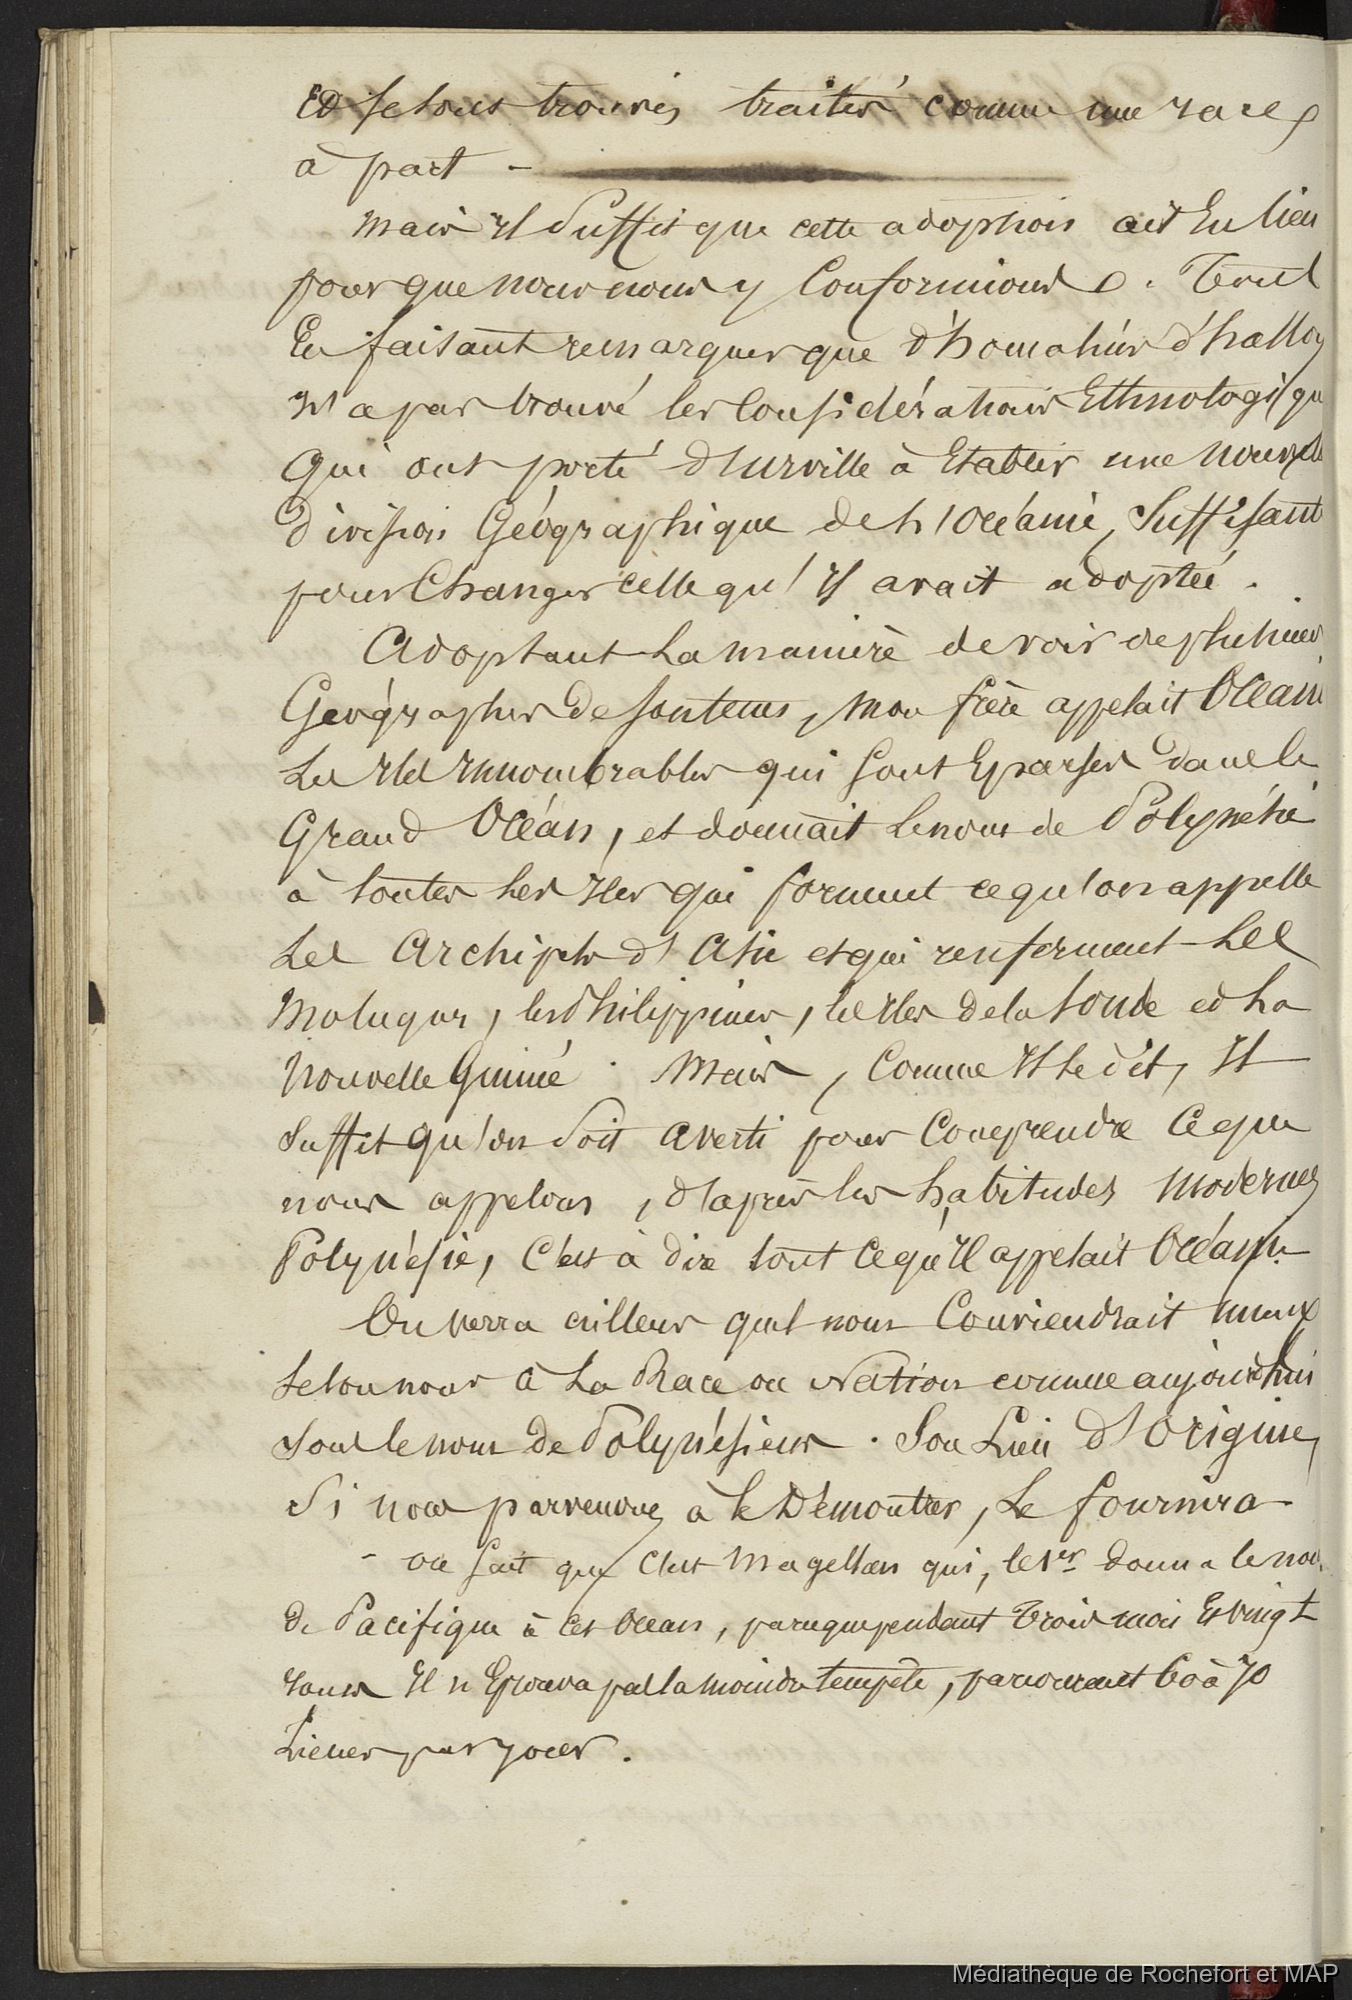 Et se sont trouvés traités comme une race
à part -
Mais il suffit que cette adoption ait Eu lieu
pour que nous nous y Conformions. Tout
En faisant remarquer que d'homalius d'halloy
n'a pas trouvé les Considérations Ethnologiqu
qui ont porté d'urville à Etablir une nouvelle
division Géographique de l'Océanie, Suffisant
pour Changer celle qu'il avait adoptée.
Adoptant La manière de voir de plusieurs
Géographes de son tems, Mon frère appelait Océanie
Les Iles Innombrables qui sont Eparses dans le
Grand Océan, et donnait le nom de Polynésie
à toutes les Iles qui forment ce qu'on appelle
Les Archipels d'Asie et qui renferment Les
Moluques, les Philippines, les Iles de la Sonde et La
Nouvelle Guinée. Mais, Comme Il le dit, Il
suffit qu'on soit averti pour Comprendre Ce que
nous appelons, d'après les habitudes modernes
Polynésie, C'est à dire tout Ce qu'Il appelait Océanie
On verra ailleurs quel nom Conviendrait mieux
selon nous à La Race ou Nation connue aujourd'hui
sous le nom de Polynésiens. Son Lieu d'Origine,
Si nous parvenons à le Démontrer, Le fournira
- on sait que C'est Magellan qui, le 1er donna le nom
de Pacifique à cet Océan, parceque pendant Trois mois Et vingt
Jours Il n'Eprouva pas la moindre tempête, parcourant 60 à 70
Lieues par jour.
Médiathèque de Rochefort et MAP